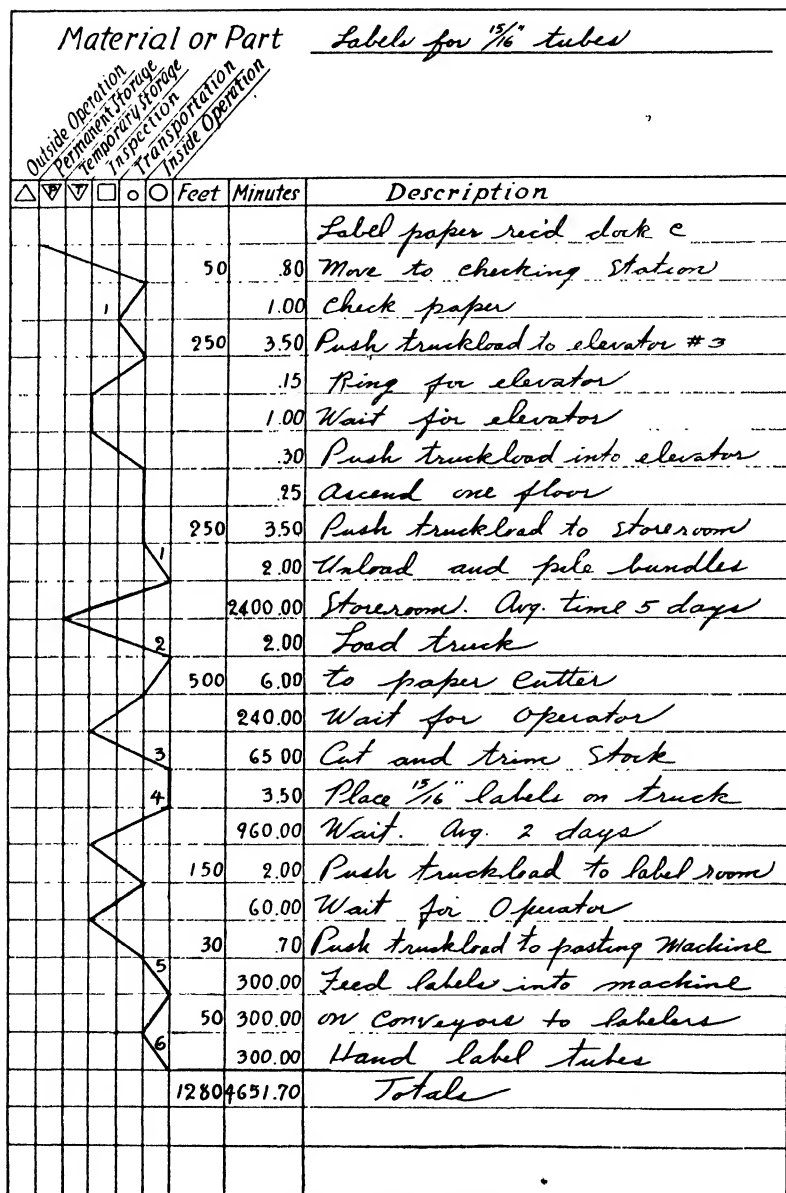 Material or Part Labels for 15/16" tubes
Outside Operation
Permanent Storage
Temporary Storage
Inspection
Transportation
Inside Operation
P T Feet Minutes Description
Label paper rec'd dock C
50 .80 Move to checking Station
1 1.00 Check paper
250 3.50 Push truckload to elevator #3
.15 Ring for elevator
1.00 Wait for elevator
.30 Push truckload into elevator
.25 Ascend one floor
250 3.50 Push truckload to storeroom
1 2.00 Unload and pile bundles
2400.00 Storeroom. Avg. time 5 days
2 2.00 Load truck
500 6.00 to paper Cutter
240.00 Wait for Operator
3 65 00 Cut and trim Stock
4 3.50 Place 15/16" labels on truck
960.00 Wait. Avg. 2 days
150 2.00 Push truckload to label room
60.00 Wait for Operator
30 .70 Push truckload to pasting Machine
5 300.00 Feed labels into machine
50 300.00 on Conveyors to labelers
6 300.00 Hand label tubes
1280 4651.70 Totals